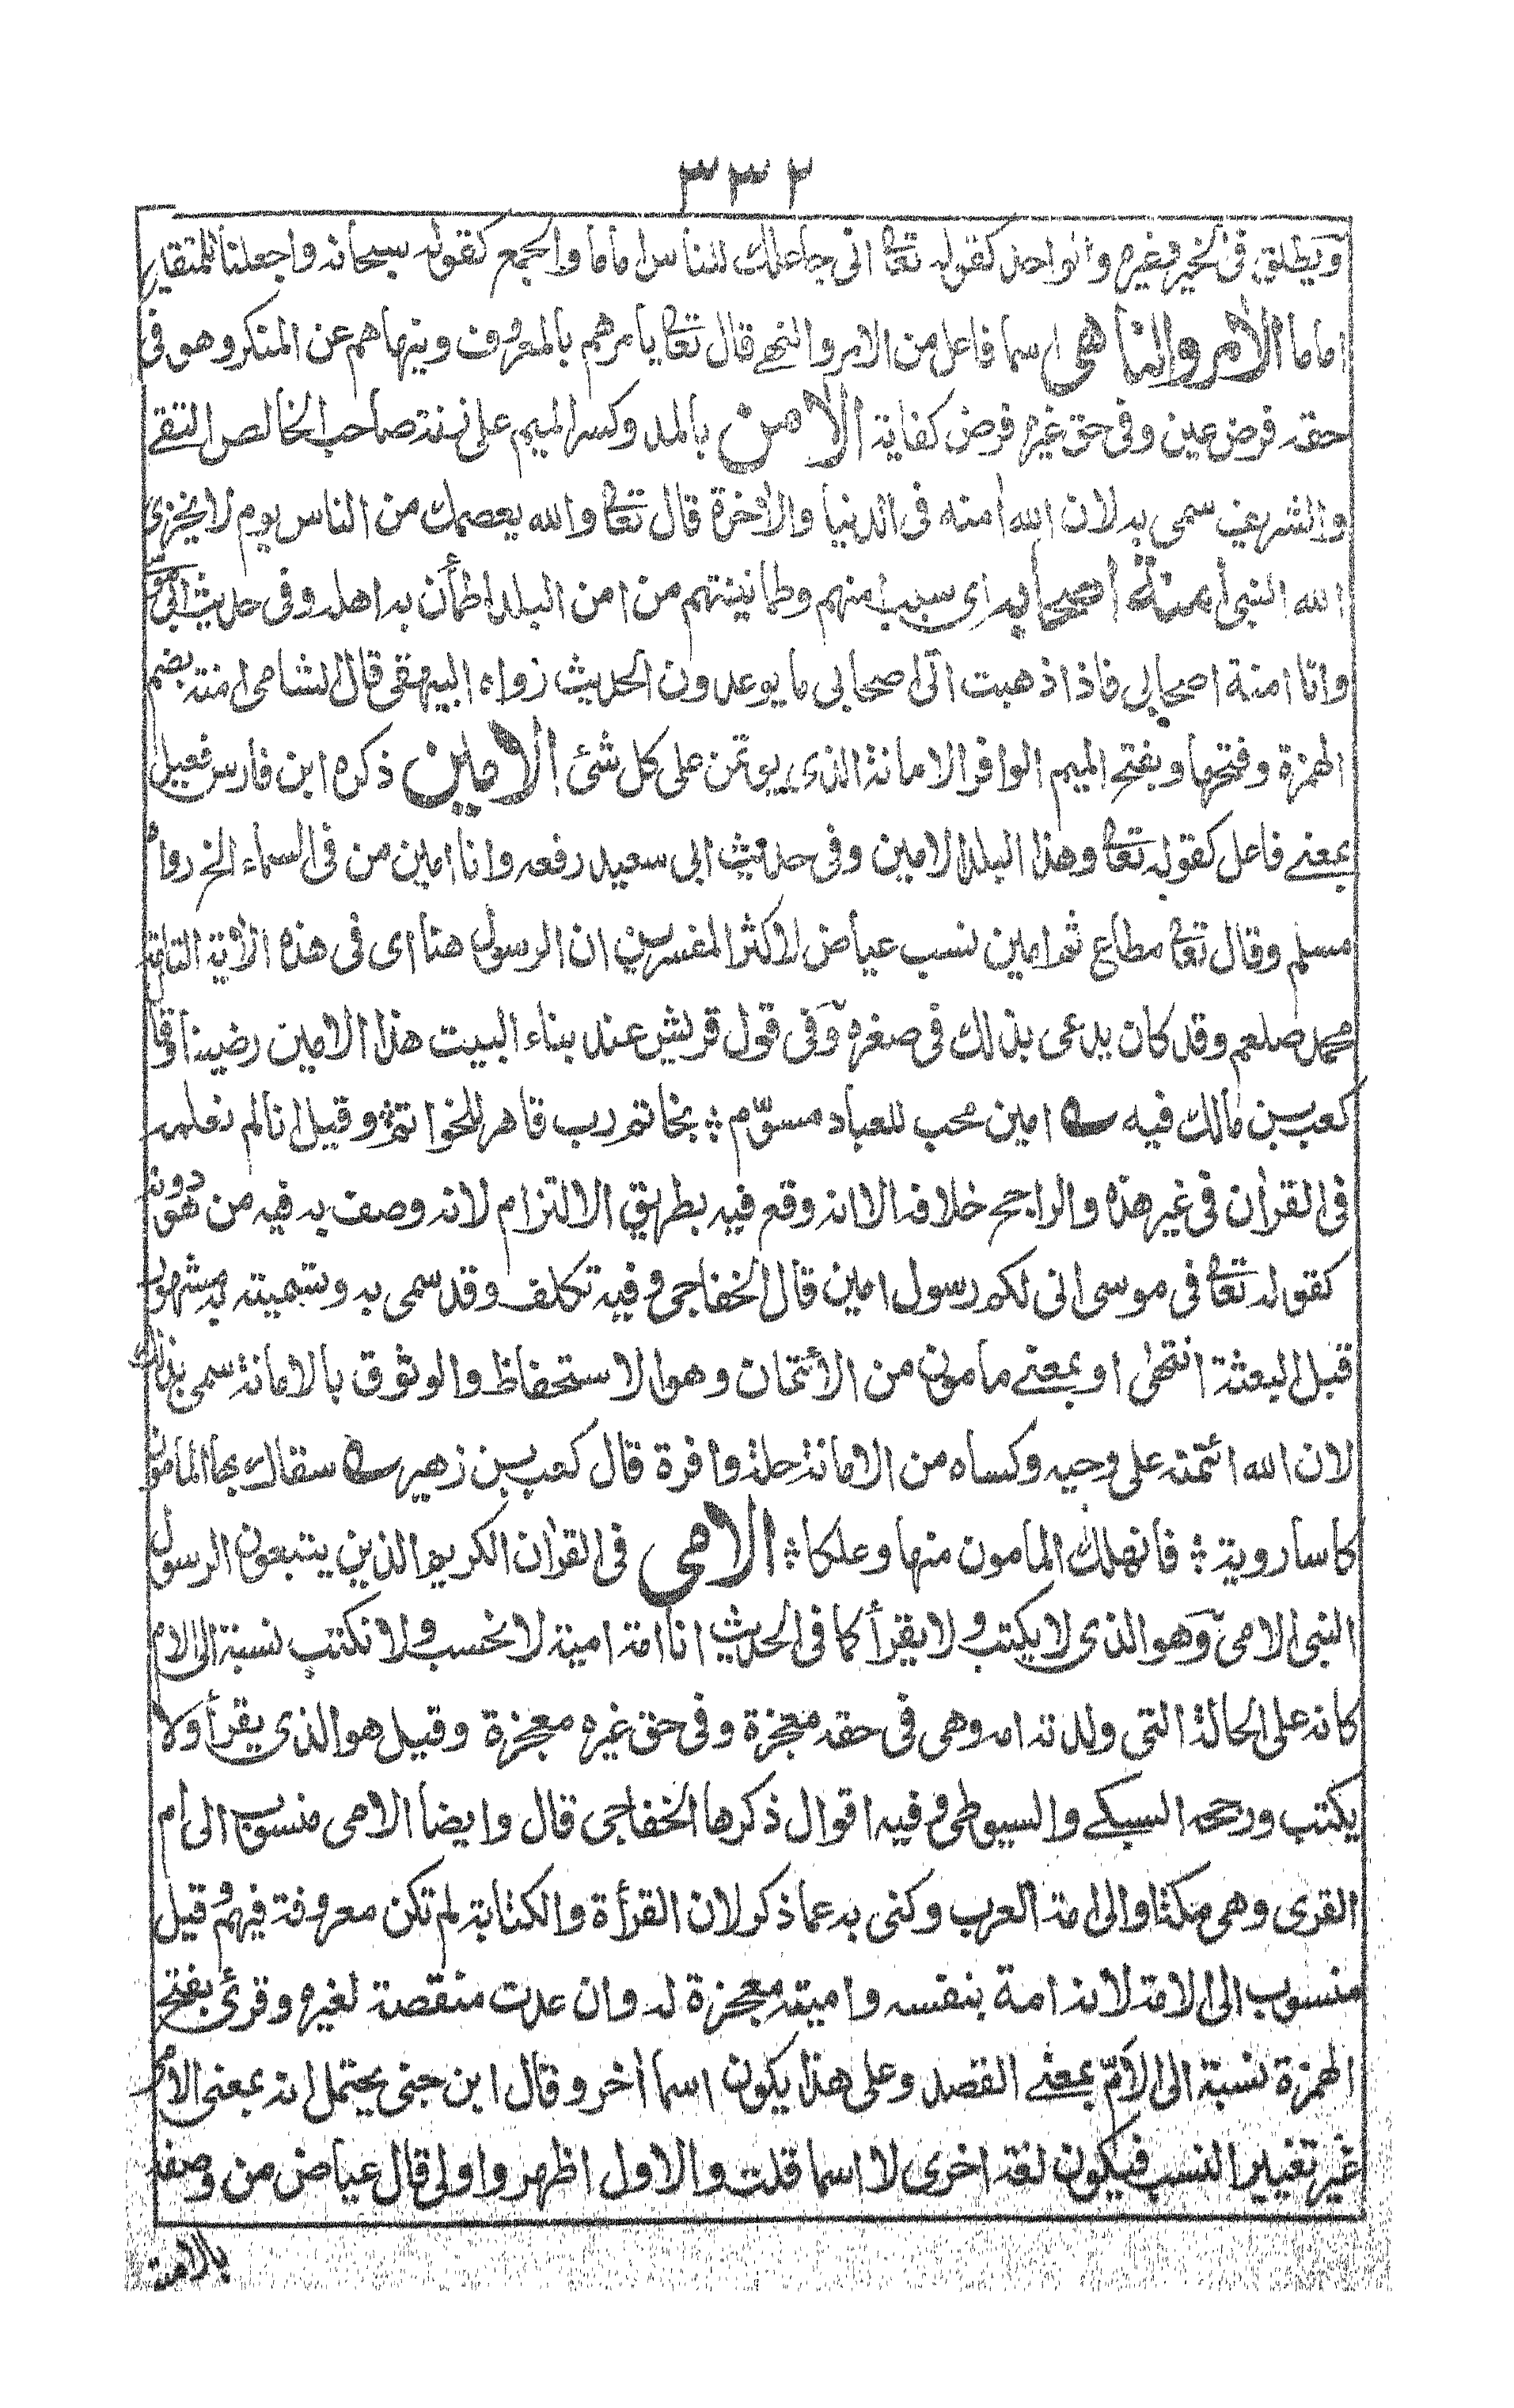 ٢٣٣
ويطلق فى الخير وغيره والواحد كقوله تعا انى جاعلك للناس اماما والجمع كقوله سبحانه واجعلنا للمتقين
اماما الآمر والناهى اسما فاعل من الامر والنهے قال تعا يامرهم بالمعروف وينهاهم عن المنكر وهو فى
حقه فرض عين وفى حق غيره فرض كفاية الآمن بالمد وكسر الميم على زنة صاحب الخالص التقے
والشريف سمى به لان الله امنه فى الدنيا والآخرة قال تعا والله يعصمك من الناس يوم لا يخزى
الله النبى امنة اصحابه اى سبب امنهم وطمانينتهم من امن البلد اطمأن به اهله وفى حديث
وانا امنة اصحابى فاذا ذهبت اتى اصحابى ما يوعدون الحديث رواه البيهقى قال الشامى امنة بضم
الهمزة وفتحها وبفتح الميم الوافر الامانة الذى يوتمن على كل شئ الامين ذكره ابن فارس فعيل
بمعنے فاعل كقوله تعا وهذا البلد الامين وفى حديث ابى سعيد رفعه وانا امين من فى السماء الخ رواه
مسلم وقال تعا مطاع ثم امين نسب عياض لاكثر المفسرين ان الرسول هنا اى فى هذه الآية التامة
محمد صلعم وقد كان يدعى بذلك فى صغره وفى قول قريش عند بناء البيت هذا الامين رضينا وقا
كعب بن مالك فيه امين محب للعباد مسوّم ؞ بخاتم رب قاهر للخواتم ؞ وقيل انا لم نعلمه
فى القرآن فى غير هذه والراجح خلافه الا انه وقع فيه بطريق الالتزام لانه وصف به فيه من هو دونه
كقوله تعا فى موسى انى لكم رسول امين قال الخفاجى وفيه تكلف وقد سمى به وتسميته به مشهور
قبل البعثة انتهى او بمعنے مامون من الأئتمان وهو الاستحفاظ والوثوق بالامانة سمى بذلك
لان الله ائتمنه على وحيه وكساه من الامانة حلة وافرة قال كعب بن زهير سقاك بها المامون
كاسا روية ؞ فانهلك المامون منها وعلكا ؞ الامى فى القرآن الكريم الذين يتبعون الرسول
النبى الامى وهو الذى لا يكتب ولا يقرأ كما فى الحديث انا امة امية لا نحسب ولا نكتب نسبة الى الام
كانه على الحالة التى ولدته امه وهى فى حقه معجزة وفى حق غيره معجزة وقيل هو الذى يقرأ ولا
يكتب ورجحه السبكے والسيوطى وفيه اقوال ذكرها الخفاجى قال وايضا الامى منسوب الى ام
القرى وهى مكة او الى امة العرب وكنى به عما ذكر لان القرأة والكتابة لم تكن معروفة فيهم وقيل
منسوب الى الامة لانه امة بنفسه واميته معجزة له وان عدت منقصة لغيره وقرئ بفتح
الهمزة نسبة الى الأمّ بمعنے القصد وعلى هذا يكون اسما آخر وقال ابن جنى يحتمل انه بمعنى الام
غير تغيير النسب فيكون لغة اخرى لا اسما قلت والاول اظهر واولى قال عياض من وصفه
بالامية